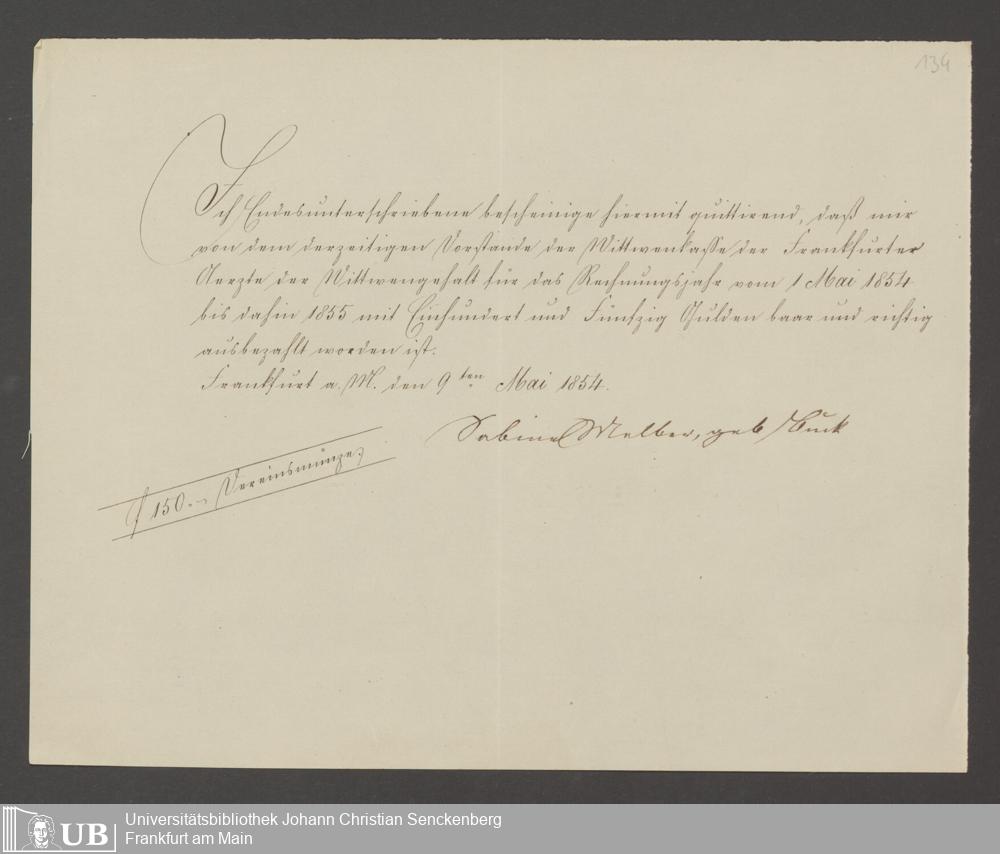 134
Ich Endesunterschriebene bescheinige hiermit quittirend, daß mir
von dem derzeitigen Vorstande der Wittwenkasse der Frankfurter
Aerzte der Wittwengehalt für das Rechnungsjahr vom 1 Mai 1854
bis dahin 1855 mit Einhundert und Fünfzig Gulden baar und richtig
ausbezahlt worden ist.
Frankfurt a. M. den 9ten Mai 1854.
Sabine Melber, geb Buck
f 150.– Vereinsmünze
UB
Universitätsbibliothek Johann Christian Senckenberg
Frankfurt am Main